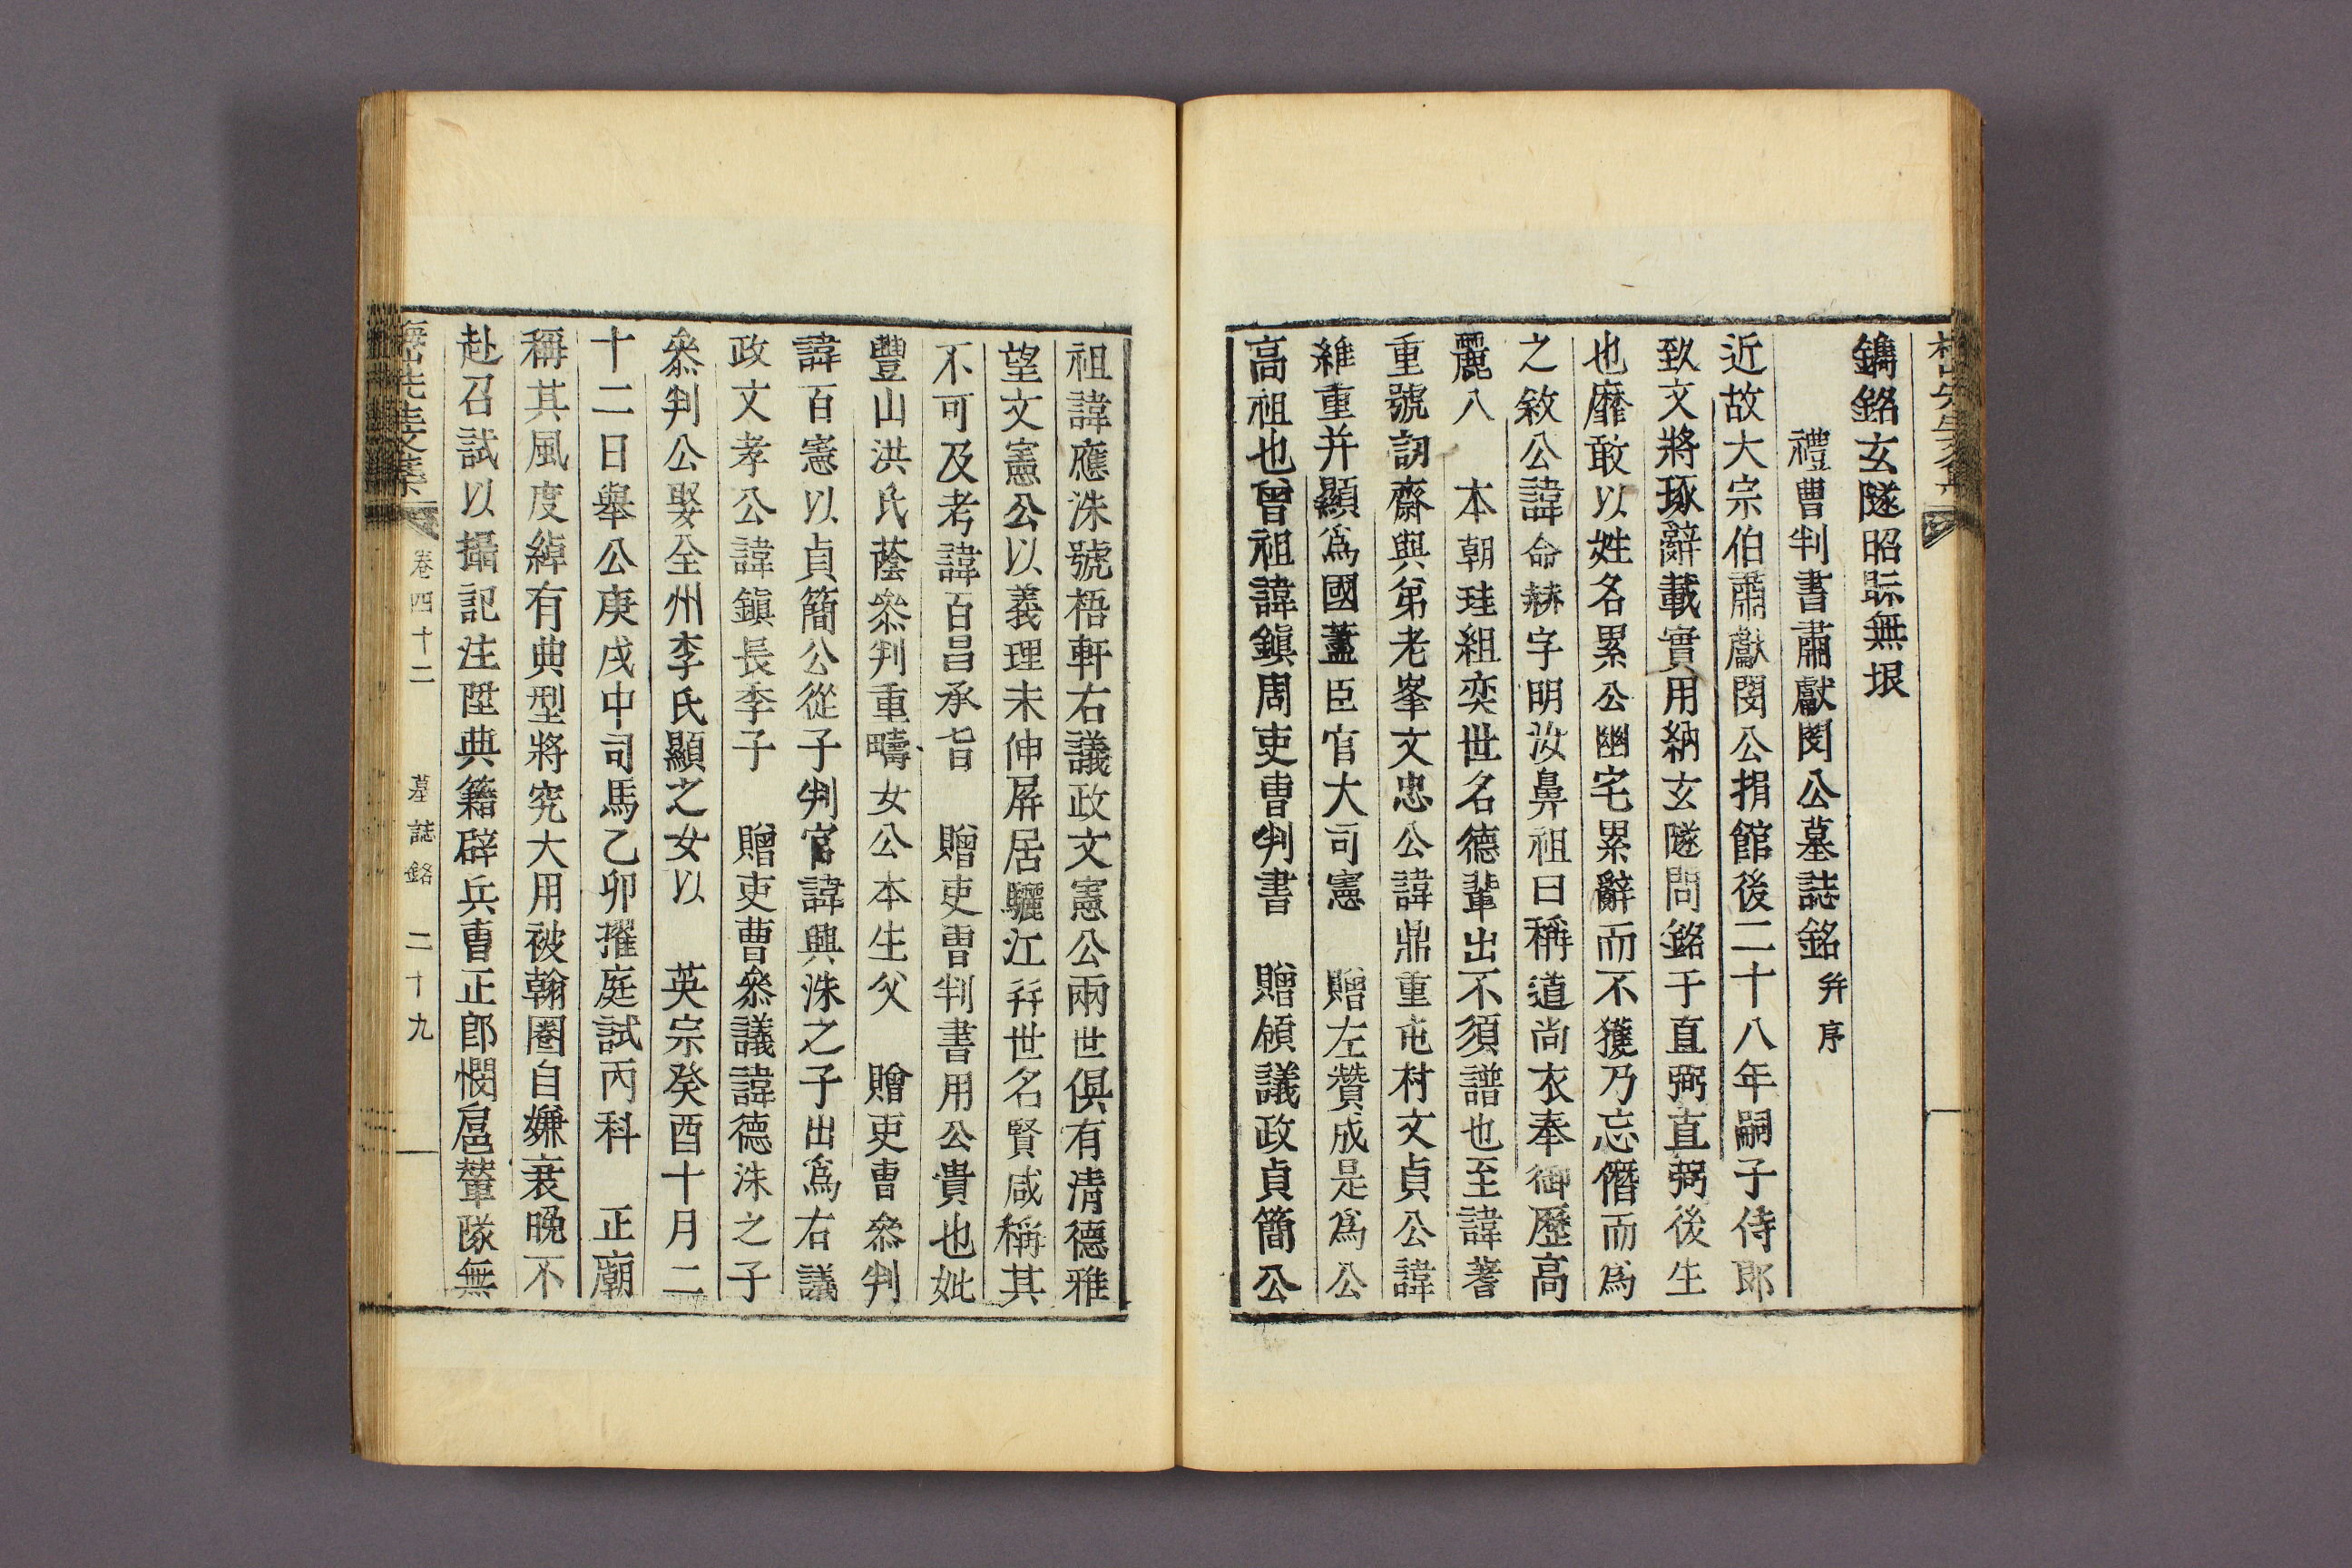 鐫銘玄隧昭眎無垠
禮曹判書肅獻閔公墓誌銘 幷序
近故大宗伯肅獻閔公捐館後二十八年嗣子侍郞
致文將琢辭載實用納玄隧問銘于直弼直弼後生
也靡敢以姓名累公幽宅累辭而不獲乃忘僭而爲
之敘公諱命爀字明汝鼻祖曰稱道尙衣奉御歷高
麗八 本朝珪組奕世名德輩出不須譜也至諱蓍
重號訒齋與弟老峯文忠公諱鼎重屯村文貞公諱
維重并顯爲國藎臣官大司憲 贈左贊成是爲公
高祖也曾祖諱鎭周吏曹判書 贈領議政貞簡公
祖諱應洙號梧軒右議政文憲公兩世俱有淸德雅
望文憲公以義理未伸屛居驪江幷世名賢咸稱其
不可及考諱百昌承旨 贈吏曹判書用公貴也妣
豐山洪氏蔭叅判重疇女公本生父 贈吏曹叅判
諱百憲以貞簡公從子判官諱興洙之子出爲右議
政文孝公諱鎭長季子 贈吏曹叅議諱德洙之子
叅判公娶全州李氏顯之女以 英宗癸酉十月二
十二日舉公庚戌中司馬乙卯擢庭試丙科 正廟
稱其風度綽有典型將究大用被翰圈自嫌衰晚不
赴召試以攝記注陞典籍辟兵曹正郎憫扈輦隊無
梅山先生文集 卷四十二 墓誌銘 二十九